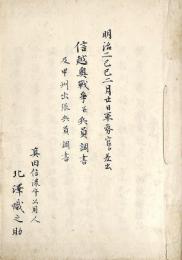 明治二己巳二月廿日軍務官差出
信越奥戦争ニ付兵員調書
及甲州出張兵員調書
真田信濃守公用人
北澤幟之助